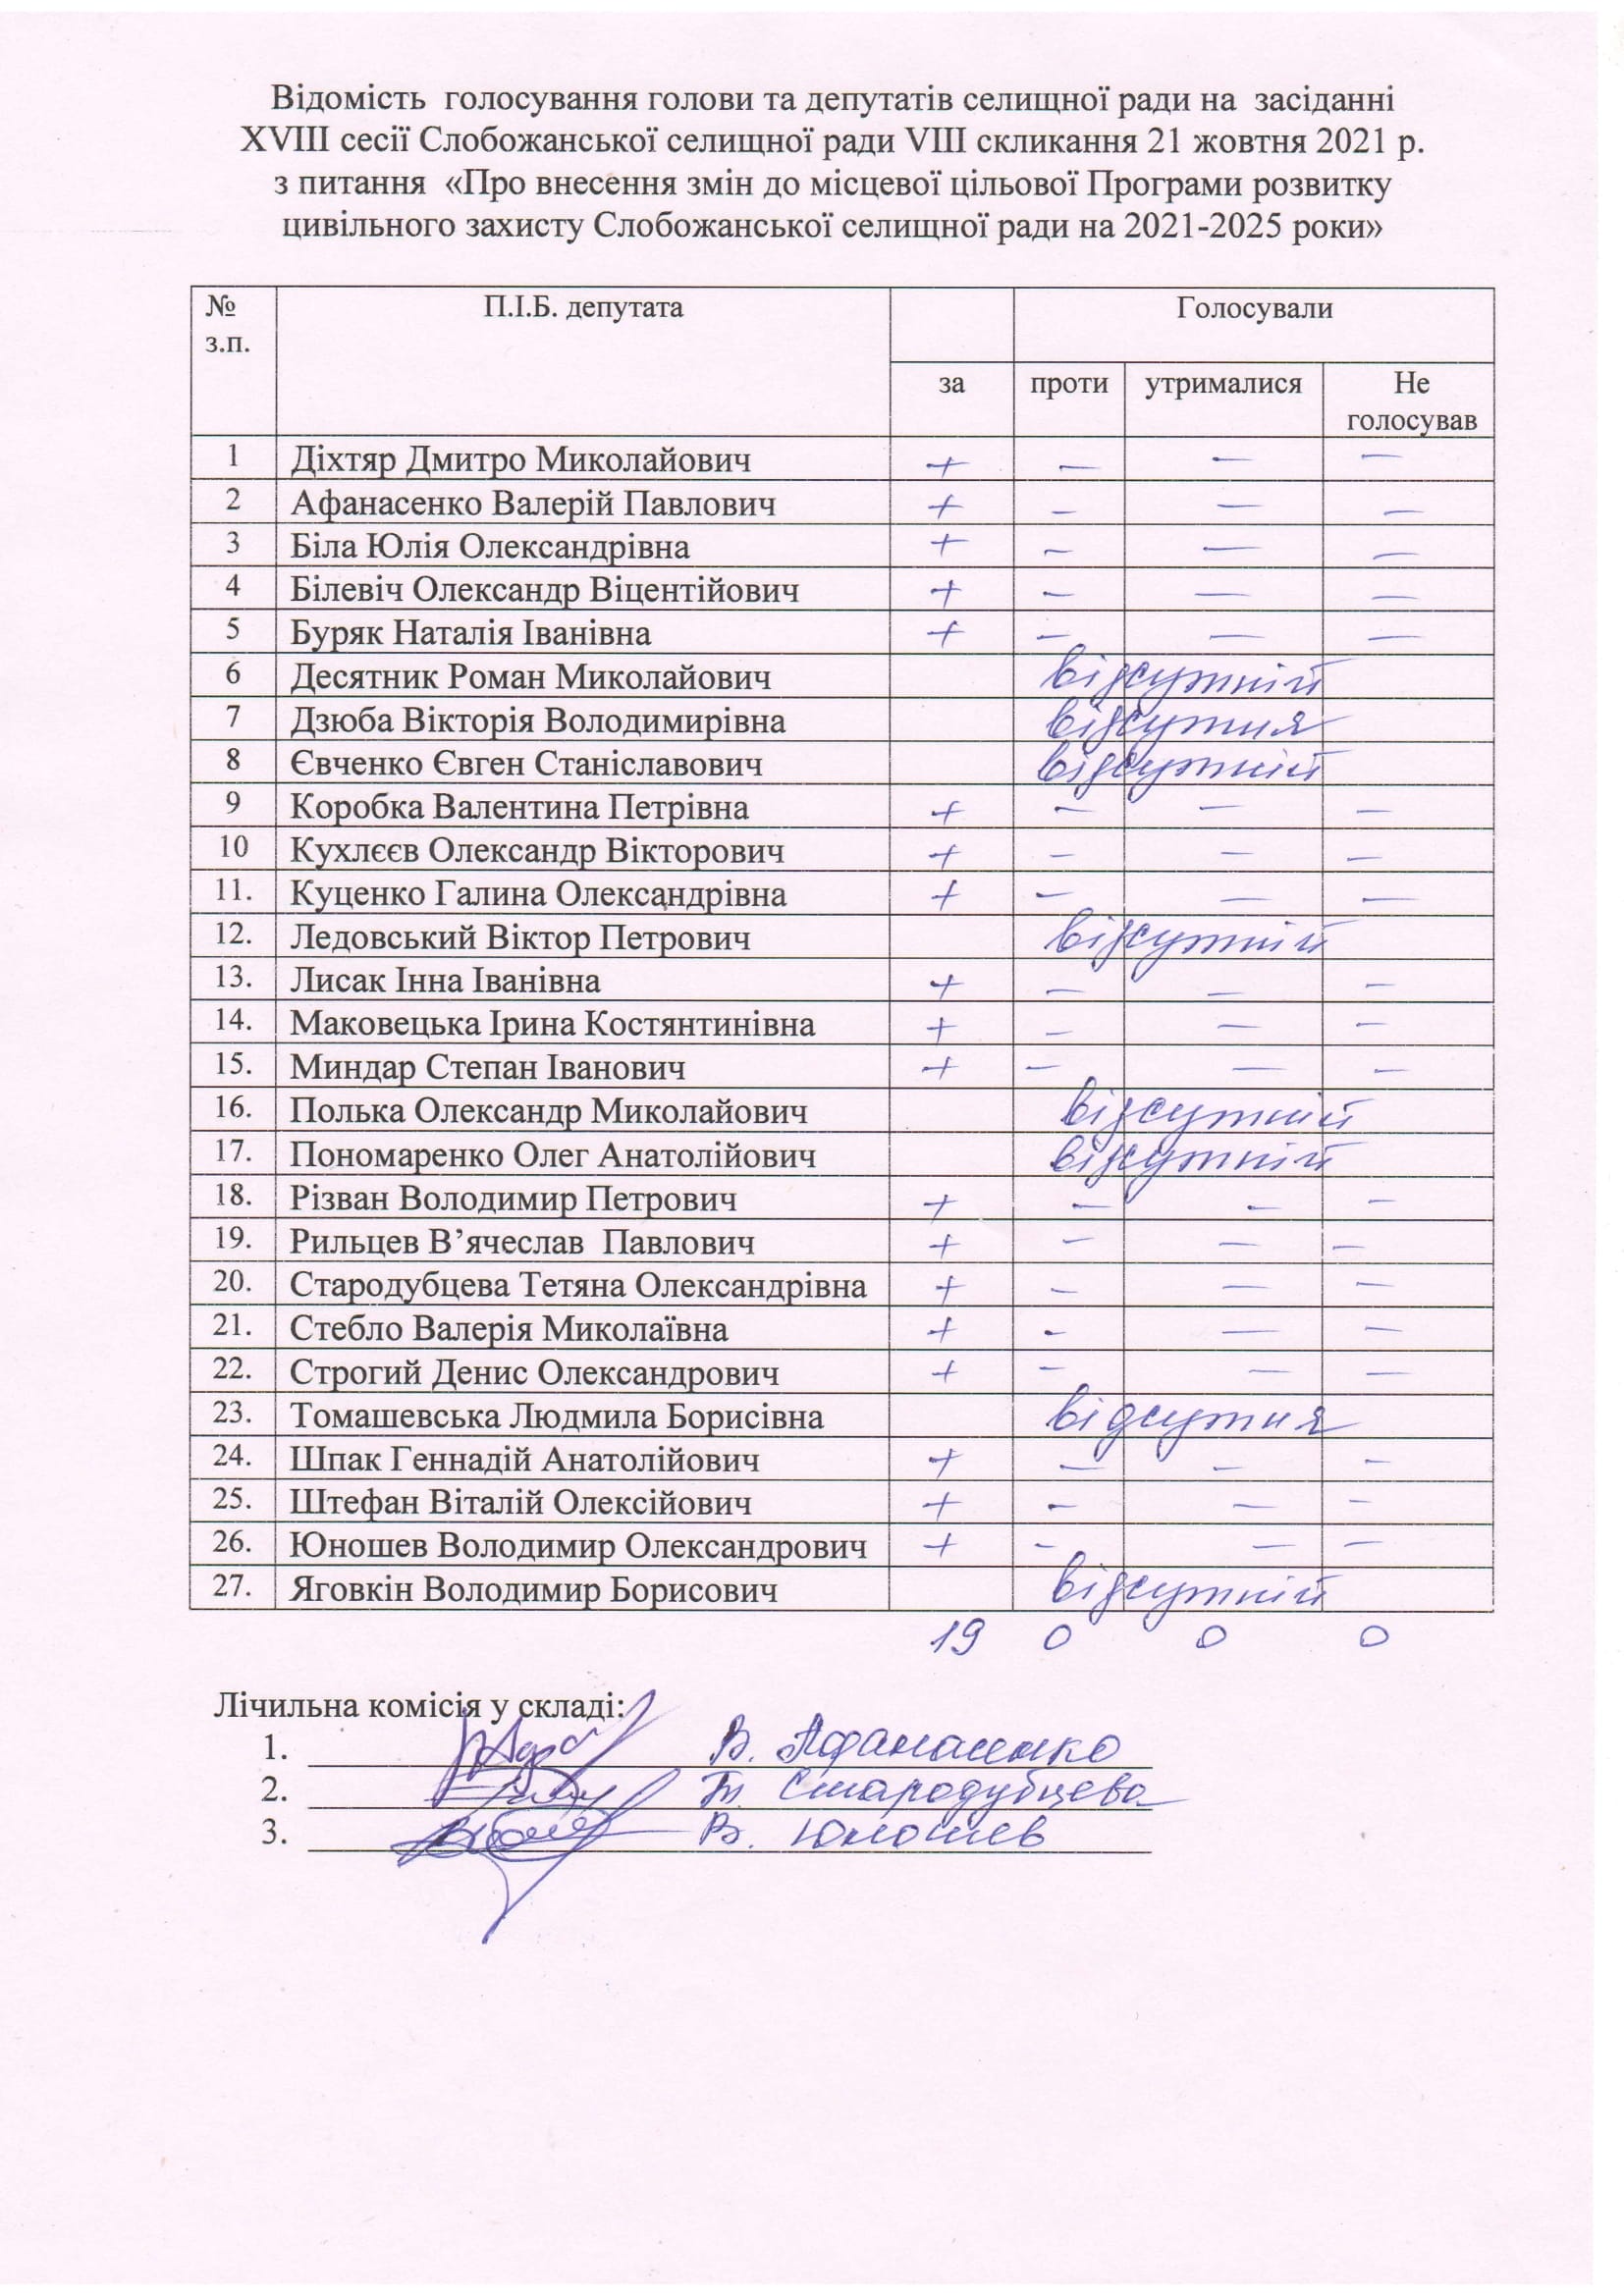 Відомість голосування голови та депутатів селищної ради на засіданні
XVIII сесії Слобожанської селищної ради VIII скликання 21 жовтня 2021 р.
з питання «Про внесення змін до місцевої цільової Програми розвитку
цивільного захисту Слобожанської селищної ради на 2021-2025 роки»
№ з.п. П.І.Б. депутата Голосували
за проти утрималися Не голосував
1 Діхтяр Дмитро Миколайович + — — —
2 Афанасенко Валерій Павлович + — — —
3 Біла Юлія Олександрівна + — — —
4 Білевіч Олександр Віцентійович + — — —
5 Буряк Наталія Іванівна + — — —
6 Десятник Роман Миколайович відсутній
7 Дзюба Вікторія Володимирівна відсутня
8 Євченко Євген Станіславович відсутній
9 Коробка Валентина Петрівна + — — —
10 Кухлєєв Олександр Вікторович + — — —
11. Куценко Галина Олександрівна + — — —
12. Ледовський Віктор Петрович відсутній
13. Лисак Інна Іванівна + — — —
14. Маковецька Ірина Костянтинівна + — — —
15. Миндар Степан Іванович + — — —
16. Полька Олександр Миколайович відсутній
17. Пономаренко Олег Анатолійович відсутній
18. Різван Володимир Петрович + — — —
19. Рильцев В’ячеслав Павлович + — — —
20. Стародубцева Тетяна Олександрівна + — — —
21. Стебло Валерія Миколаївна + — — —
22. Строгий Денис Олександрович + — — —
23. Томашевська Людмила Борисівна відсутня
24. Шпак Геннадій Анатолійович + — — —
25. Штефан Віталій Олексійович + — — —
26. Юношев Володимир Олександрович + — — —
27. Яговкін Володимир Борисович відсутній
19 0 0 0
Лічильна комісія у складі:
1. В. Афанасенко
2. Т. Стародубцева
3. В. Юношев